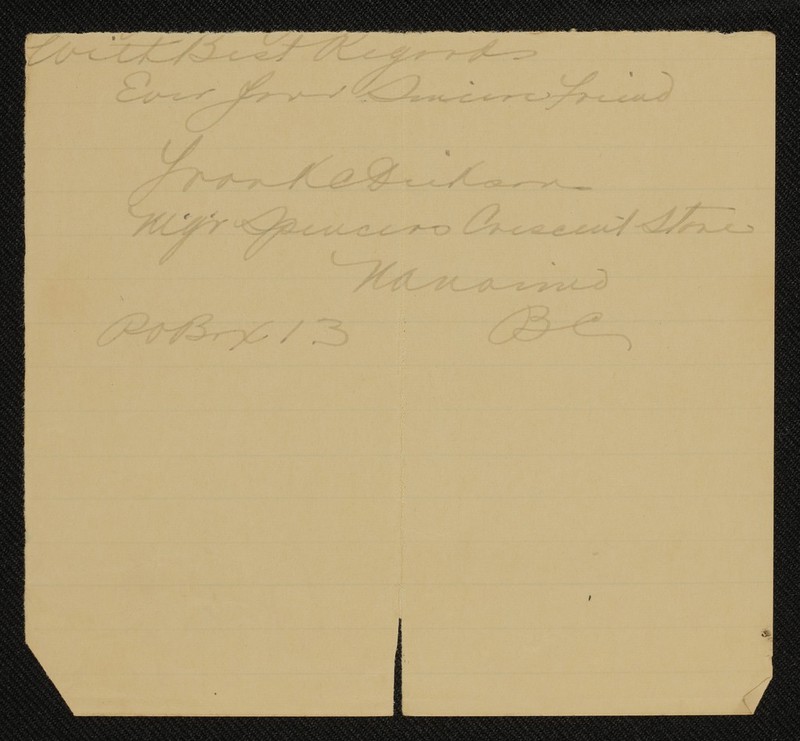 With Best Regards
Ever Your Sincere Friend
Frank C Dickson
Mg'r Spencers Crescent Store
Nanaimo
PO Box 13 BC